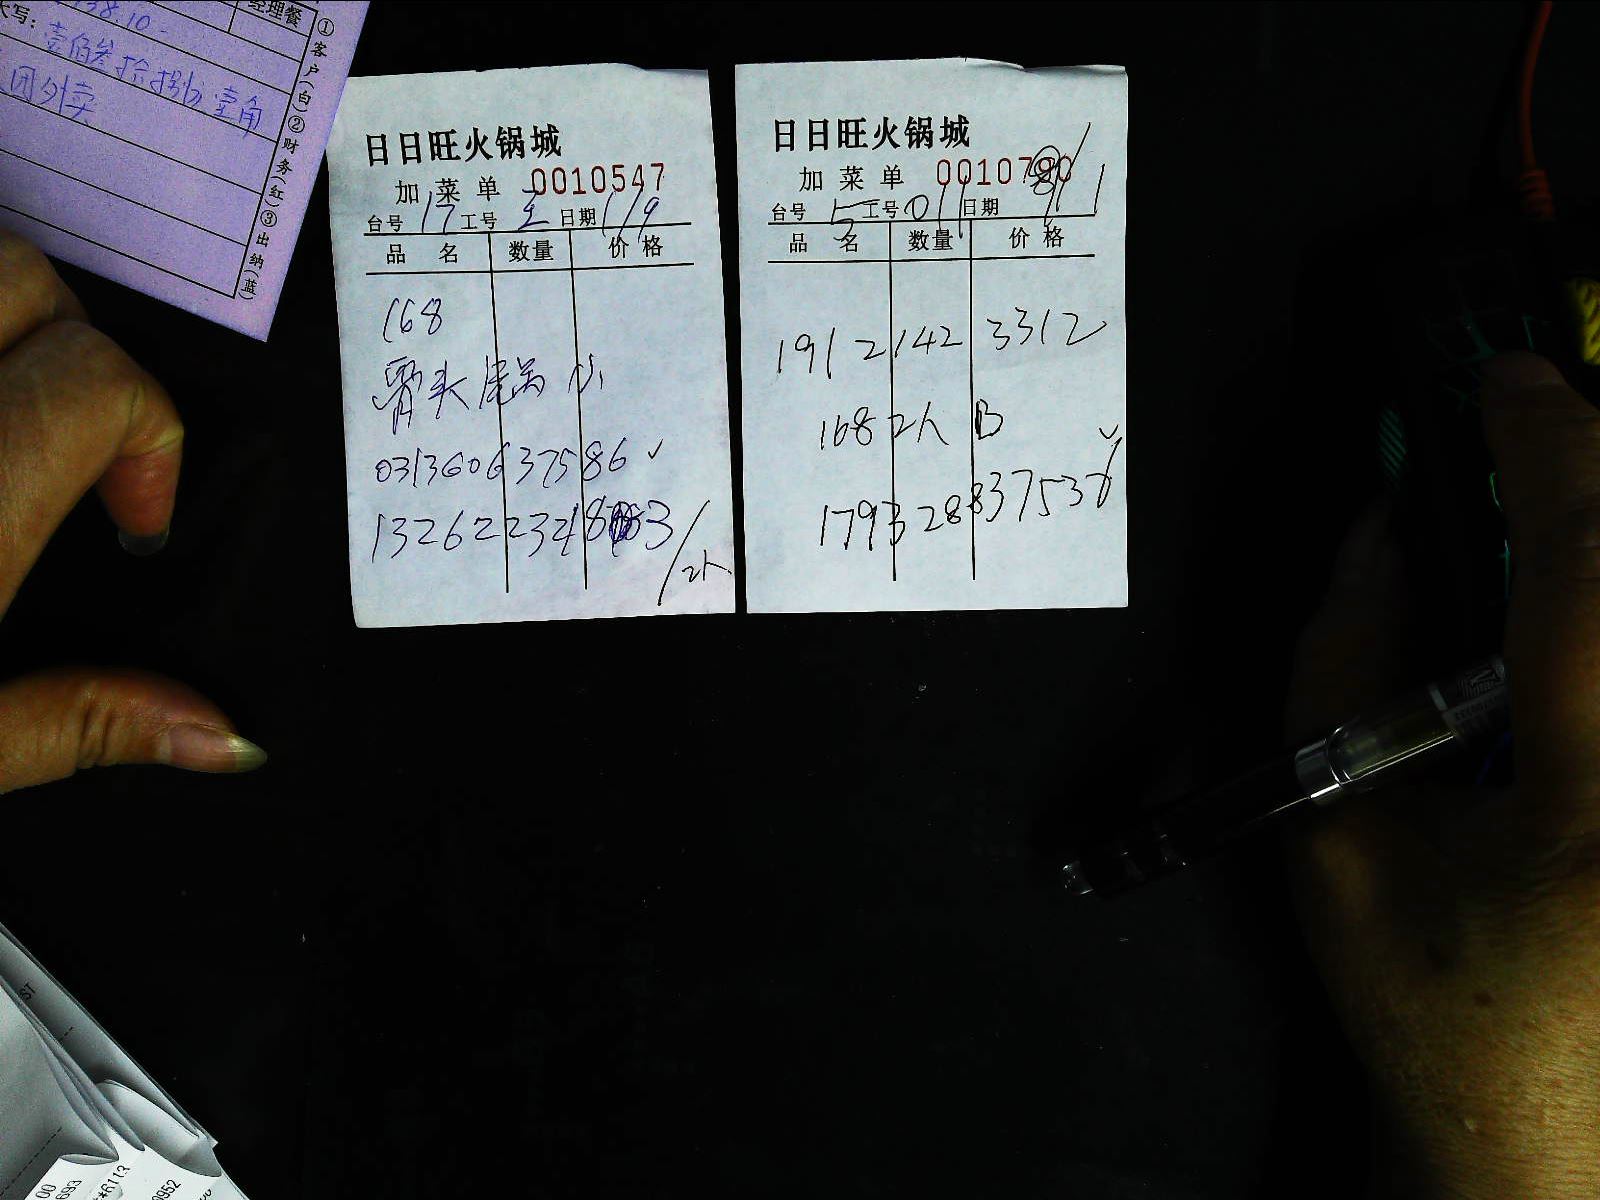 138.10-
经理餐
大写: 壹佰叁拾捌 壹角
团外卖
①客户(白)②财务(红)③出纳(蓝)
日日旺火锅城
加菜单 0010547
台号 17 工号 日期 1/9
品 名 数量 价格
168
骨头 小
0313606375 86 ✓
132622348 3 / 2人
日日旺火锅城
加菜单 0010780
台号 5 工号 011 日期 1
品 名 数量 价格
1912 142 3312
168 2人 B
1793288375 3
ST
00
693
**6113
0952